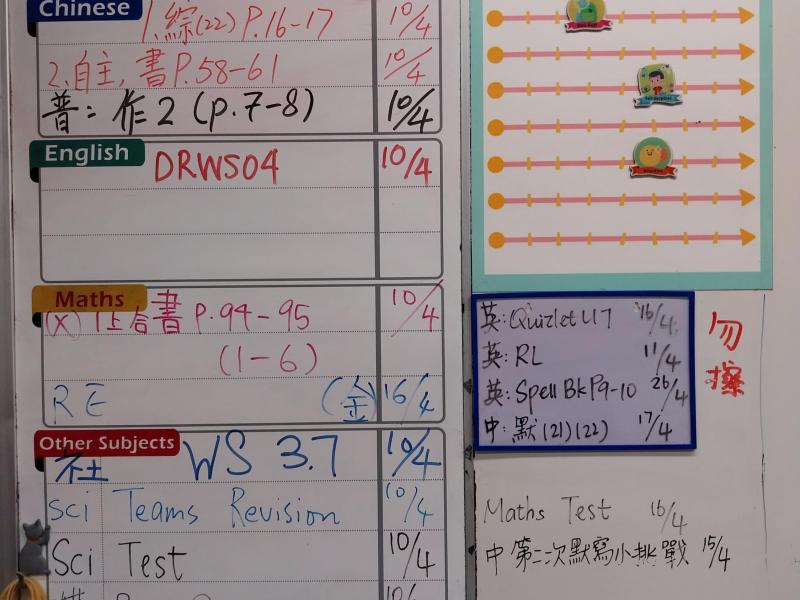 Chinese
1.綜(22) P.16-17 10/4
2.自主,書P.58-61 10/4
普:作2 (p.7-8) 10/4
English
DRWS04 10/4
Maths
(X) 1上合書 P.94-95 10/4
(1-6)
RE (金) 16/4
Other Subjects
社 WS 3.7 10/4
sci Teams Revision 10/4
Sci Test 10/4
英:Quizlet U7 16/4
英:RL 11/4
英:Spell Bk P9-10 26/4
中:默(21)(22) 17/4
勿擦
Maths Test 16/4
中第二次默寫小挑戰 15/4